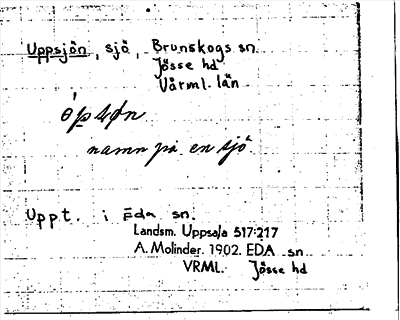 Uppsjön, sjö, Brunskogs sn.
Jösse hd
Värml. län
namn på en sjö
Uppt. i Eda sn.
Landsm. Uppsala 517:217
A. Molinder. 1902. EDA sn
VRML. Jösse hd